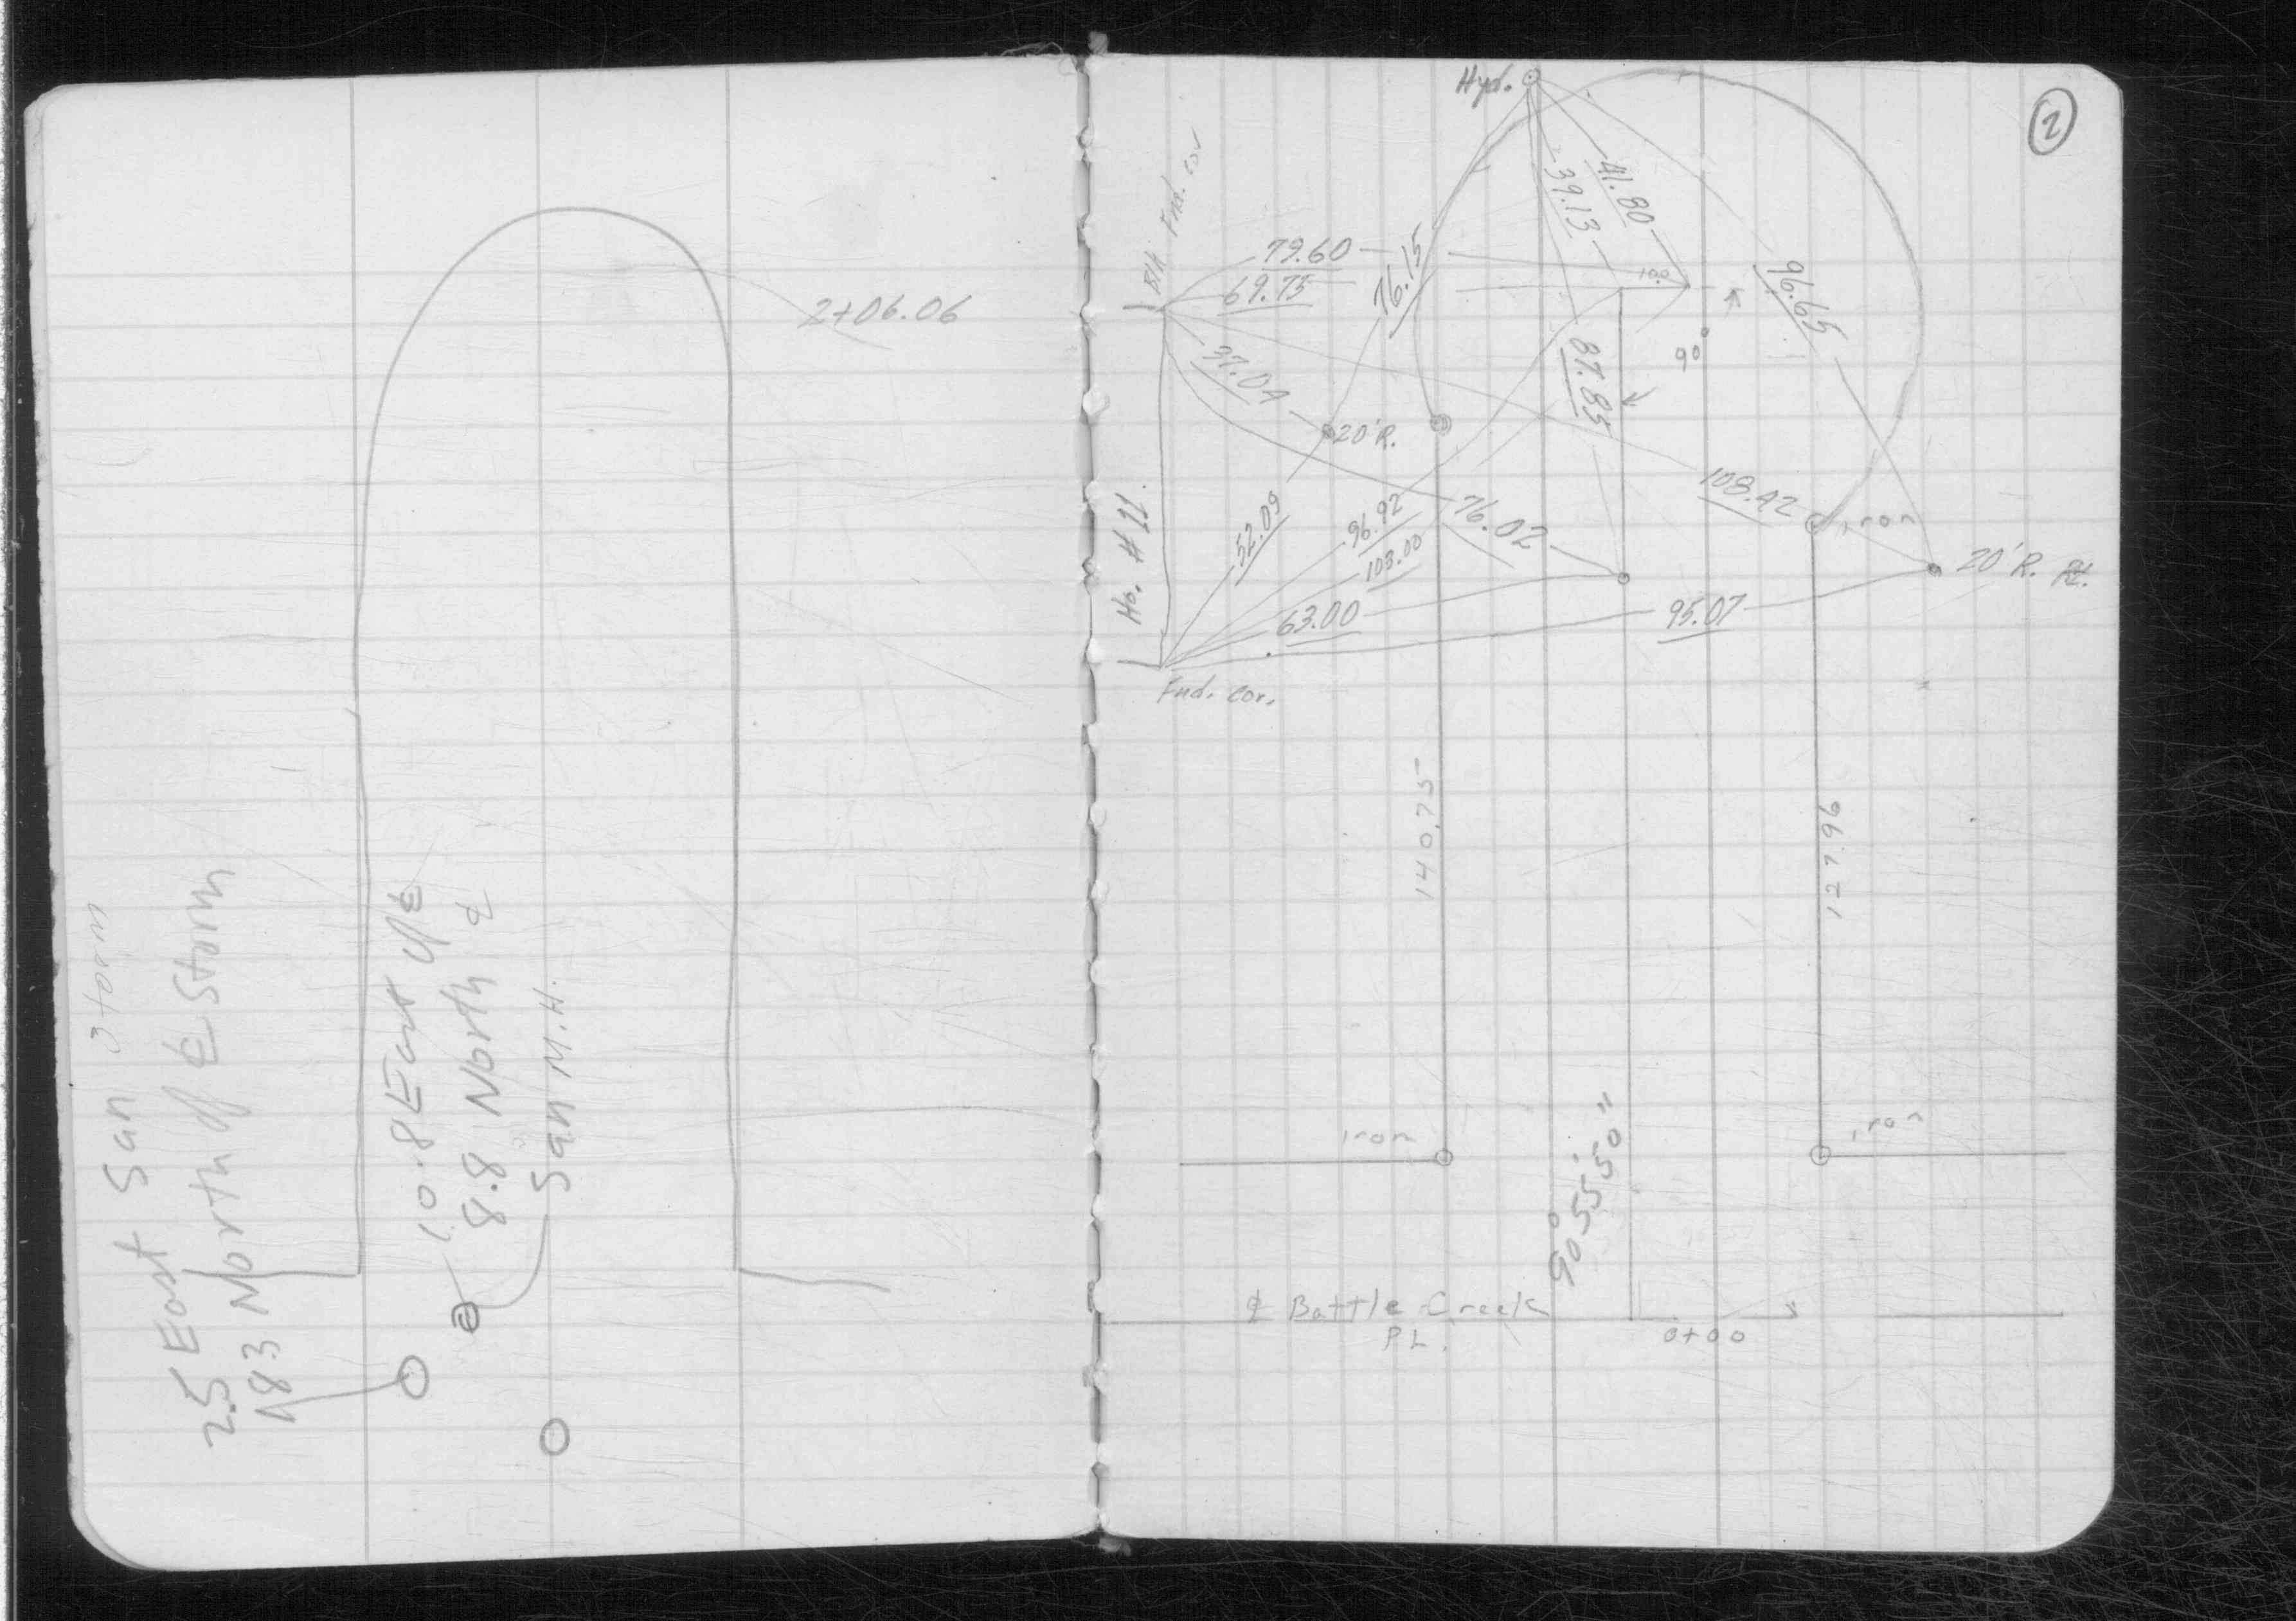 2+06.06
San Storm
2.5 East San
18.3 North off ℄ Storm
10.8 East off ℄
8.8 North ℄
San M.H.
2
Hyd.
Blk Fnd. cor
79.60
69.75
76.15
39.13
41.80
100
96.65
90
37.04
87.85
20' R.
Ho. # 11.
52.09
96.92
103.00
76.02
108.42
iron
20' R. Pt.
63.00
95.07
Fnd. cor.
140.75
127.96
iron
iron
90° 55' 50"
℄ Battle Creek
PL.
0+00